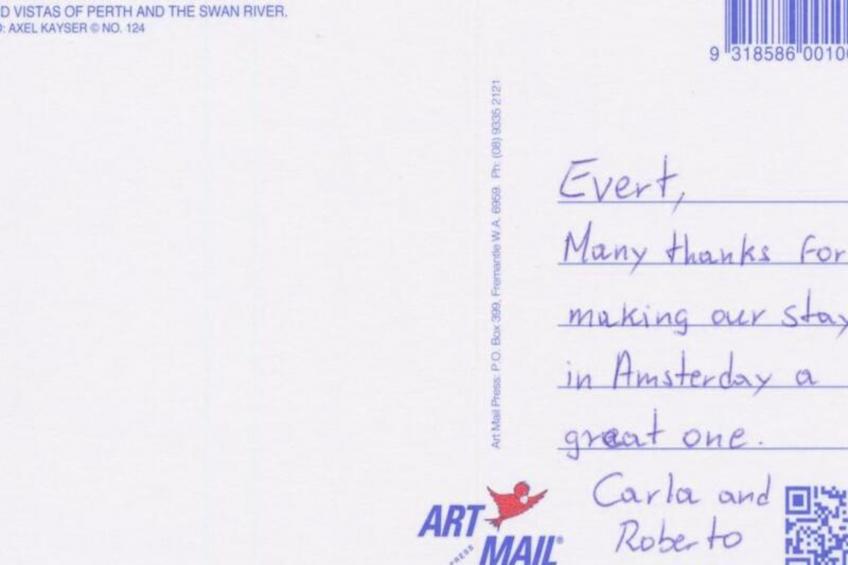 D VISTAS OF PERTH AND THE SWAN RIVER.
: AXEL KAYSER © NO. 124
9 318586 00100
Art Mail Press: P.O. Box 399, Fremantle W.A. 6959. Ph: (08) 9335 2121
Evert,
Many thanks for
making our stay
in Amsterday a
great one.
Carla and
Roberto
ART
PRESS
MAIL®